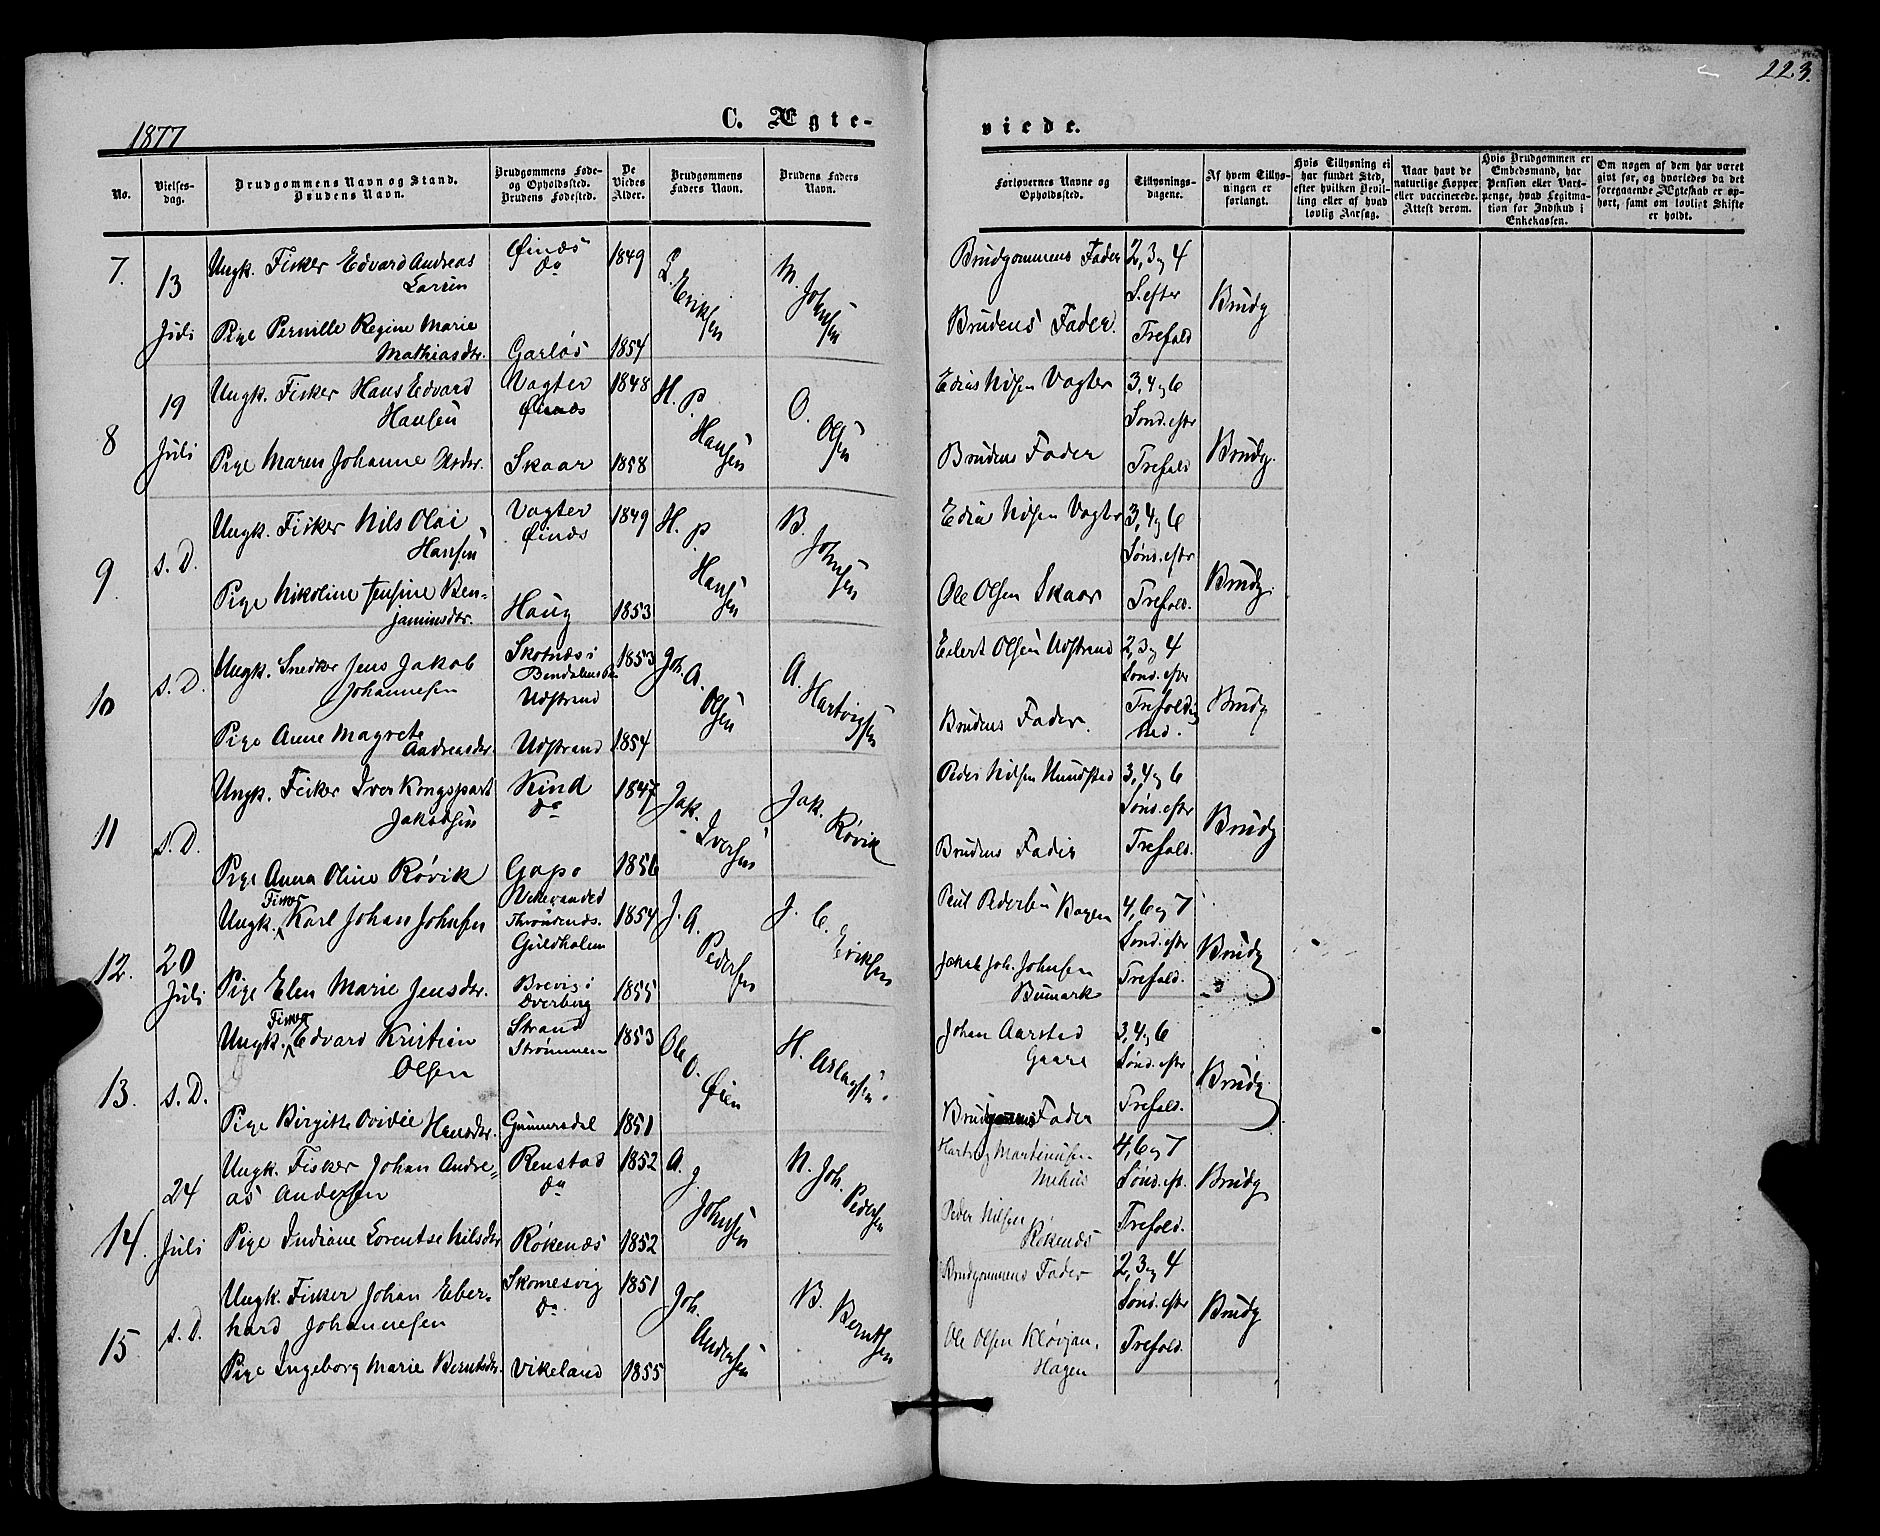 223.
1877
C. Ægte-
viede.
No.
Vielses-
dag.
Brudgommens Navn og Stand.
Brudens Navn.
Brudgommens Føde-
og Opholdssted.
Brudens Fødested.
De
Viedes
Alder.
Brudgommens
Faders Navn.
Brudens Faders
Navn.
Forlovernes Navne og
Opholdssted.
Tillysnings-
dagene.
Af hvem Tillys-
ningen er
forlangt.
Hvis Tillysning ei
har fundet Sted,
efter hvilken Bevil-
ling eller af hvad
lovlig Aarsag.
Naar havt de
naturlige Kopper
eller vaccinerede.
Attest derom.
Hvis Brudgommen er
Embedsmand, har
Pension eller Vart-
penge, hvad Legitima-
tion for Indskud i
Enkekassen.
Om nogen af dem har været
givt før, og hvorledes da det
foregaaende Ægteskab er op-
hørt, samt om lovligt Skifte
er holdt.
7.
13
Juli
Ungk. Fisker Edvard Andreas
Larsen
Øinæs
do
1849
L. Eriksen
M. Johnsen
Pige Pernille Regine Marie
Mathiasdtr.
Garlös
1854
Brudgommens Fader
Brudens Fader.
2, 3 og 4
S. efter
Trefold
Brudg
8
19
Juli
Ungk. Fisker Hans Edvard
Hansen
Vagter
Øinæs
1848
H. P. Hansen
O. Olsen
Pige Maren Johanne Olsdtr.
Skaar
1858
Edias Nilsen Vagter
Brudens Fader
3, 4 og 6
Sond. efter
Trefold
Brudg.
9
s. D.
Ungk. Fisker Nils Olai
Hansen
Vagter
Øinæs
1849
H. P. Hansen
B. Johnsen
Pige Nikoline Jensine Ben-
jaminsdtr.
Haug
1853
Edias Nilsen Vagter
Ole Olsen Skaar
3, 4 og 6
Sönd. efter
Trefold.
Brudg.
10
s. D.
Ungk. Snedker Jens Jakob
Johannesen
Skotnæs i
Udstrand
1853
Joh. A. Olsen
A. Hartvigsen
Pige Anne Magrete
Andreasdtr.
Udstrand
1854
Eilert Olsen Udstrand
Brudens Fader.
2, 3 og 4
Sond. efter
Brudg
11
s. D.
Ungk. Fisker Iver Kongspart
Jakobsen
Kind
do
1847
Jak. Iversen
Jak. Rövik
Pige Anna Oline Rövik
Gapø
1856
Peder Nilsen Hundstad
Brudens Fader
3, 4 og 6
Sönd. efter
Trefold.
Brudg
12.
20
Juli
Ungk. Fisker Karl Johan Johnsen
Throndenæs.
Guldholm
1854
J. A. Pedersen
J. C. Eriksen
Pige Elen Marie Jensdtr.
Brevig i
Dverberg
1855
Paul Pedersen Bogen
Jakob Joh. Johnsen
Bumark
4, 6 og 7
Sond. efter
Trefold.
Brudg
13.
s. D.
Ungk. Fisker Edvard Kristian
Olsen
Strand
Strömmen
1853
Ole O. Øien
H. Aslagsen
Pige Birgitte Ovidie Hansdtr.
Gunnersdal
1851
Johan Aarstad
Gaare
Fader
3, 4 og 6
Sönd. efter
Trefold.
Brudg.
14.
24
Juli
Ungk. Fisker Johan Andre-
as Andersen
Renstad
do
1852
A. J. Johnsen
N. Joh. Pedersen
Pige Indiane Lorentse Nilsdtr
Rökenæs
1852
Hartvig Martinusen
Peder Nilsen
Rökenæs
4, 6 og 7
Sönd. ef.
Trefold.
Brudg
15
s. D.
Ungk. Fisker Johan Eber-
hard Johannesen
Skomesvig
do.
1851
Joh. Andersen
B. Berntsen
Pige Ingeborg Marie Berntsdtr.
Vikeland
1855
Brudgommens Fader
Ole Olsen Klövjan,
Hagen
2, 3 og 4
Sond. efter
Trefold.
Brudg